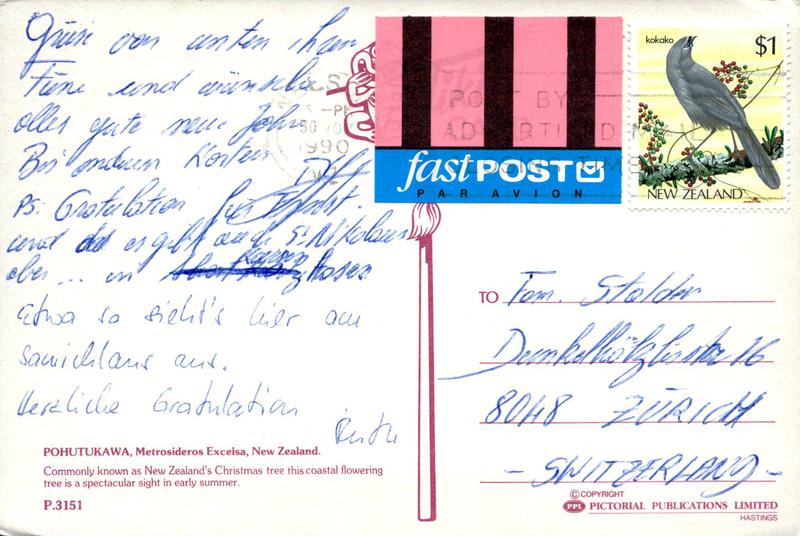 Grüsse von unten
Tiere und wünsche
alles gute neue Jahr
Bis
Ps. Gratulation
und es gibt auch St. Nikolaus
aber ... in kurzen hosen
Etwa so sieht's hier am
Samichlaus aus.
Herzliche Gratulation
POHUTUKAWA, Metrosideros Excelsa, New Zealand.
Commonly known as New Zealand's Christmas tree this coastal flowering
tree is a spectacular sight in early summer.
P.3151
1990
POST BY
fast POST
PAR AVION
kokako
$1
NEW ZEALAND
TO Fam. Stalder
Dunkelhölzlistr 16
8048 ZÜRICH
- SWITZERLAND -
© COPYRIGHT
PPL PICTORIAL PUBLICATIONS LIMITED
HASTINGS